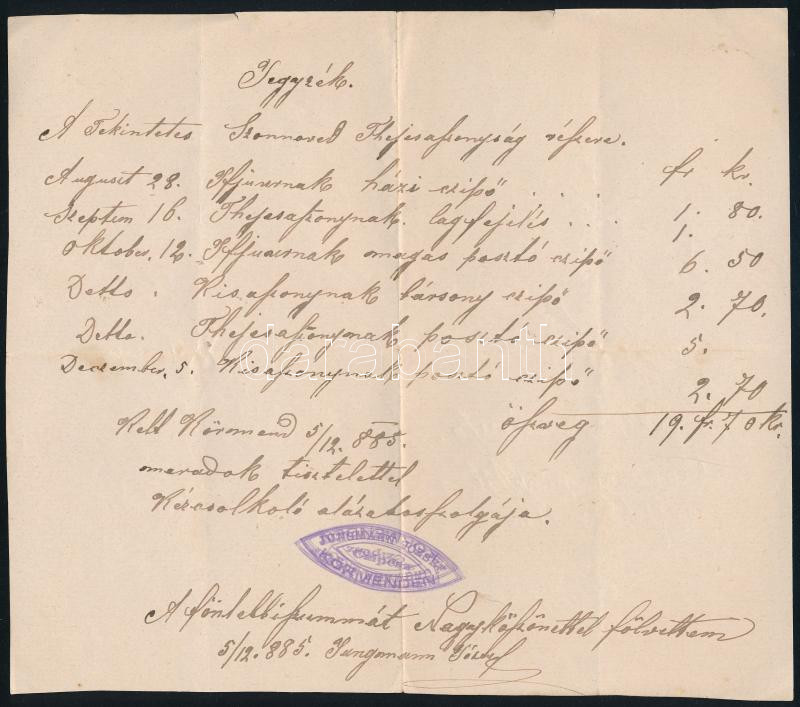 Jegyzék.
A Tekintetes Szonnoved Thejesaszonyság részere.
fr kr.
Auguszt 28. Iffjuurnak házi czipő . . . . 1. 80.
Szeptem 16. Thejesaszonynak lagfejelés . . . 1.
Oktober. 12. Iffjuurnak magas posztó czipő 6. 50
Detto . Kisaszonynak bársony czipő 2. 70.
Detto. Thejesaszonynak posztó czipő 5.
Deczember. 5. Kisaszonynak posztó czipő 2. 70
öszveg 19. fr. 70 kr.
Kelt Körmend 5/12. 885.
maradok tisztelettel
Kézcsolkoló alázatoszolgája.
JUNGMANN JÓZSEF
KÖRMENDEN
A föntebbi summát Nagyköszönettel fölvettem
5/12. 885. Jungmann József
darabanth